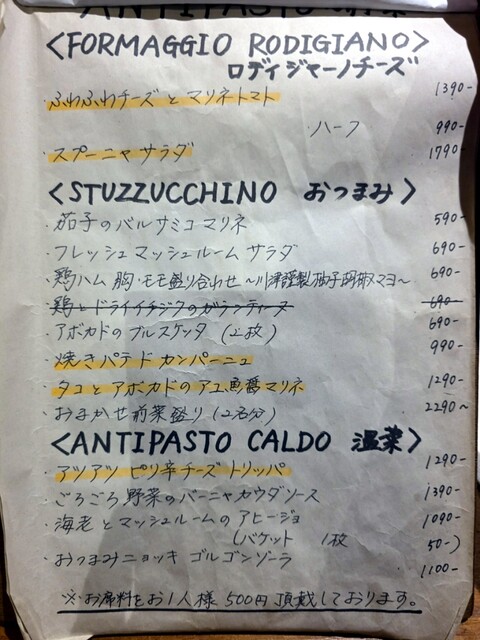 ANTIPASTO
<FORMAGGIO RODIGIANO>
ロディジャーノチーズ
・ふわふわチーズとマリネトマト 1390-
・ハーフ 990-
・スプーニャサラダ 1790-
<STUZZUCCHINO おつまみ>
・茄子のバルサミコマリネ 590-
・フレッシュマッシュルームサラダ 690-
・鶏ハム 胸・モモ盛り合わせ〜川津謹製柚子胡椒マヨ〜 690-
・鶏とドライイチジクのガランティーヌ 690-
・アボカドのブルスケッタ (2枚) 690-
・焼きパテドカンパーニュ 990-
・タコとアボカドのアユ魚醤マリネ 1290-
・おまかせ前菜盛り (2名分) 2290〜
<ANTIPASTO CALDO 温菜>
・アツアツピリ辛チーズトリッパ 1290-
・ごろごろ野菜のバーニャカウダソース 1390-
・海老とマッシュルームのアヒージョ 1090-
(バケット 1枚 50-)
・おつまみニョッキ ゴルゴンゾーラ 1100-
※お席料をお1人様500円頂戴しております。